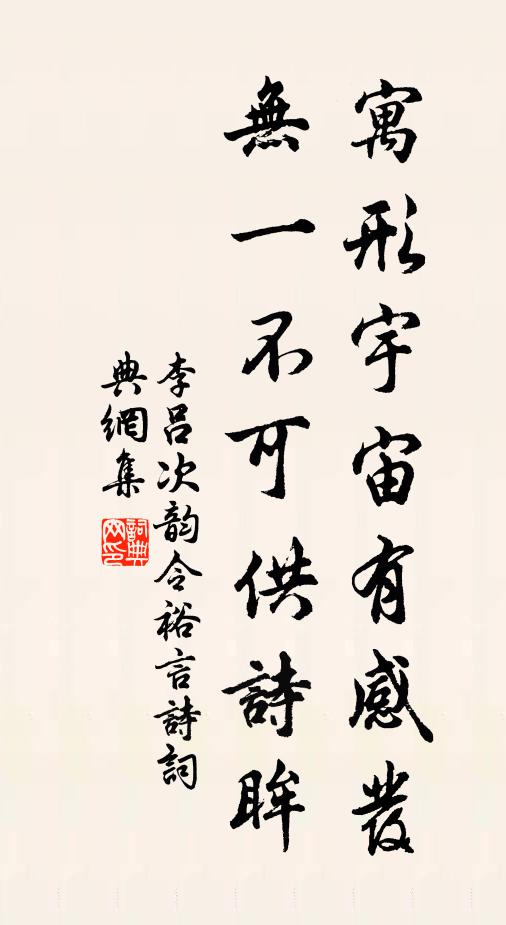 寓形宇宙有感發
無一不可供詩眸
李呂次韵令裕言詩詞
典網集
詞典网印